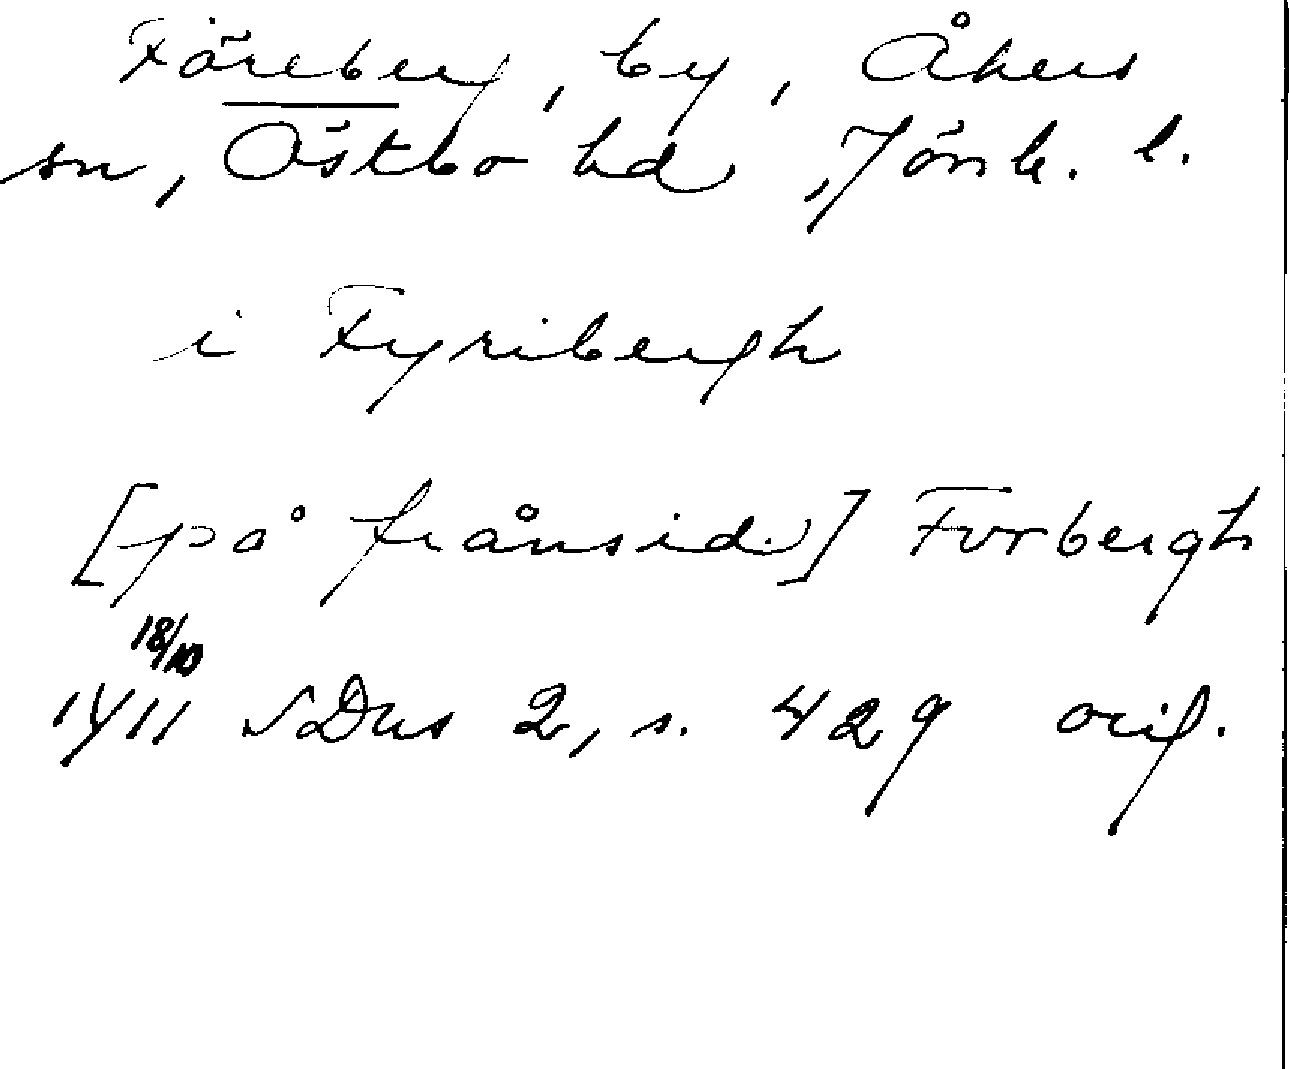 Föreberg, by, Åkers
sn, Östbo hd, Jönk. l.
i Fyribergh
[på frånsid.] Forbergh
18/10
1411 SDns 2, s. 429 orig.